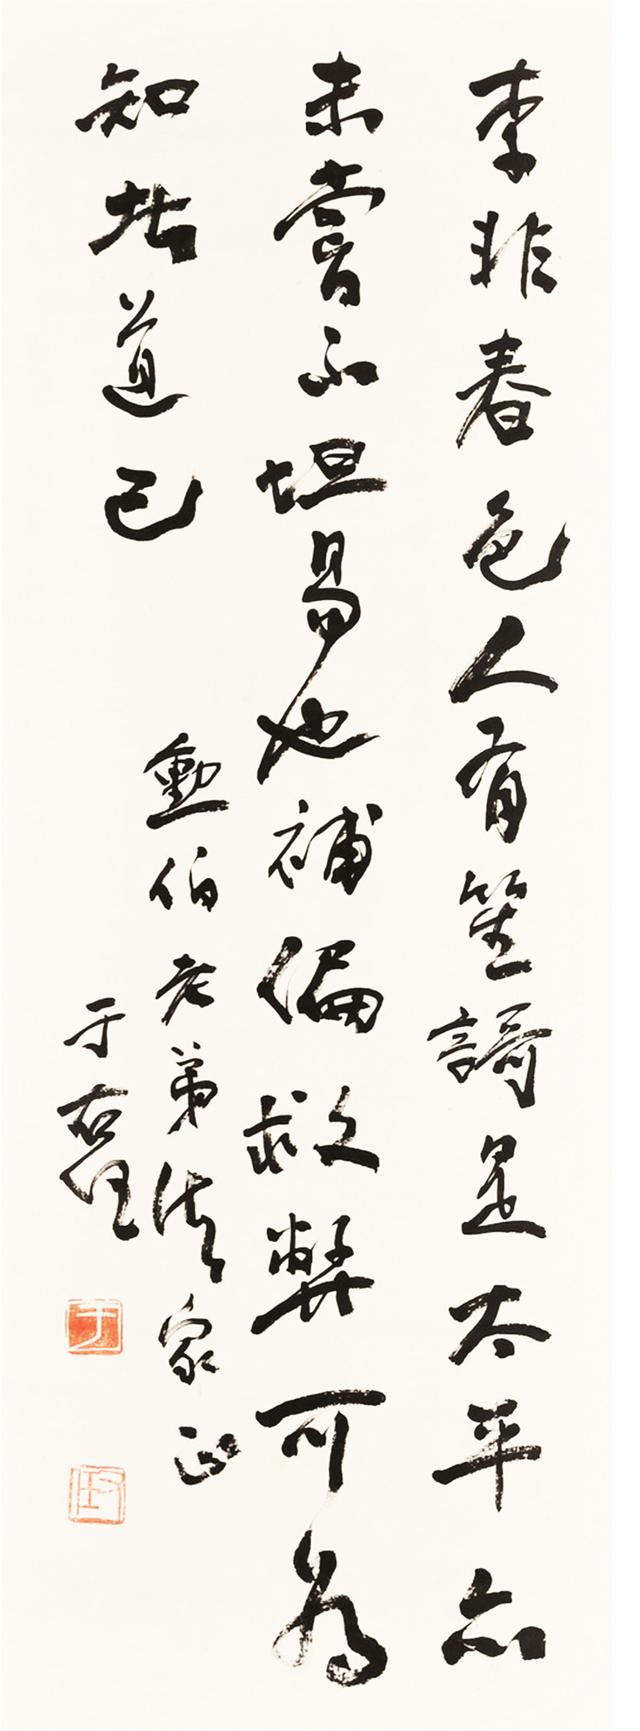 李非春色人有笙謌是太平亦
未嘗不坦易也補偏救弊可為
知者道已
勳伯老弟法家正
于右任
于
右任